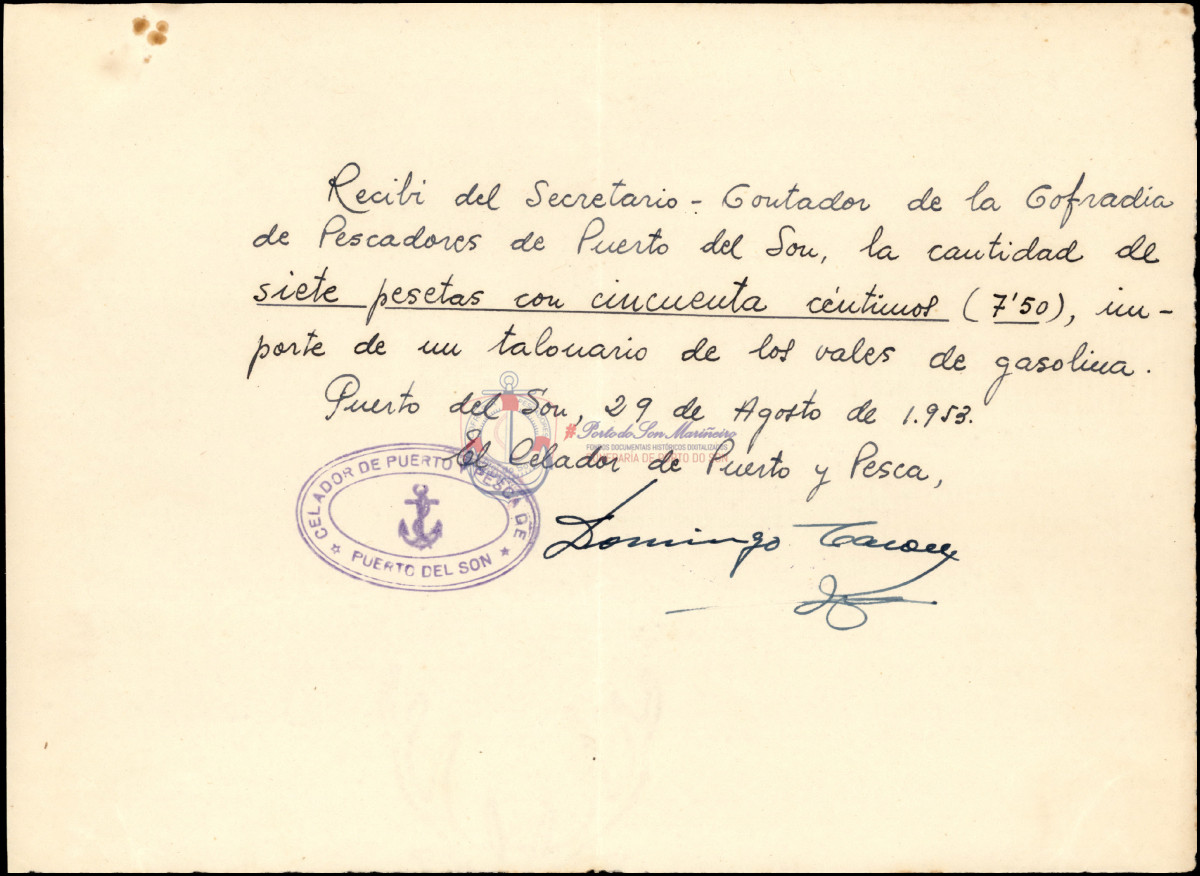 Recibi del Secretario-Contador de la Cofradia
de Pescadores de Puerto del Son, la cantidad de
siete pesetas con cincuenta céntimos (7'50), im-
porte de un talonario de los vales de gasolina.
Puerto del Son, 29 de Agosto de 1.953.
#Porto do Son Mariñeiro
FONDOS DOCUMENTAIS HISTÓRICOS DIGITALIZADOS
DE PORTO DO SON
El Celador de Puerto y Pesca,
CELADOR DE PUERTO Y PESCA DE
PUERTO DEL SON
Domingo